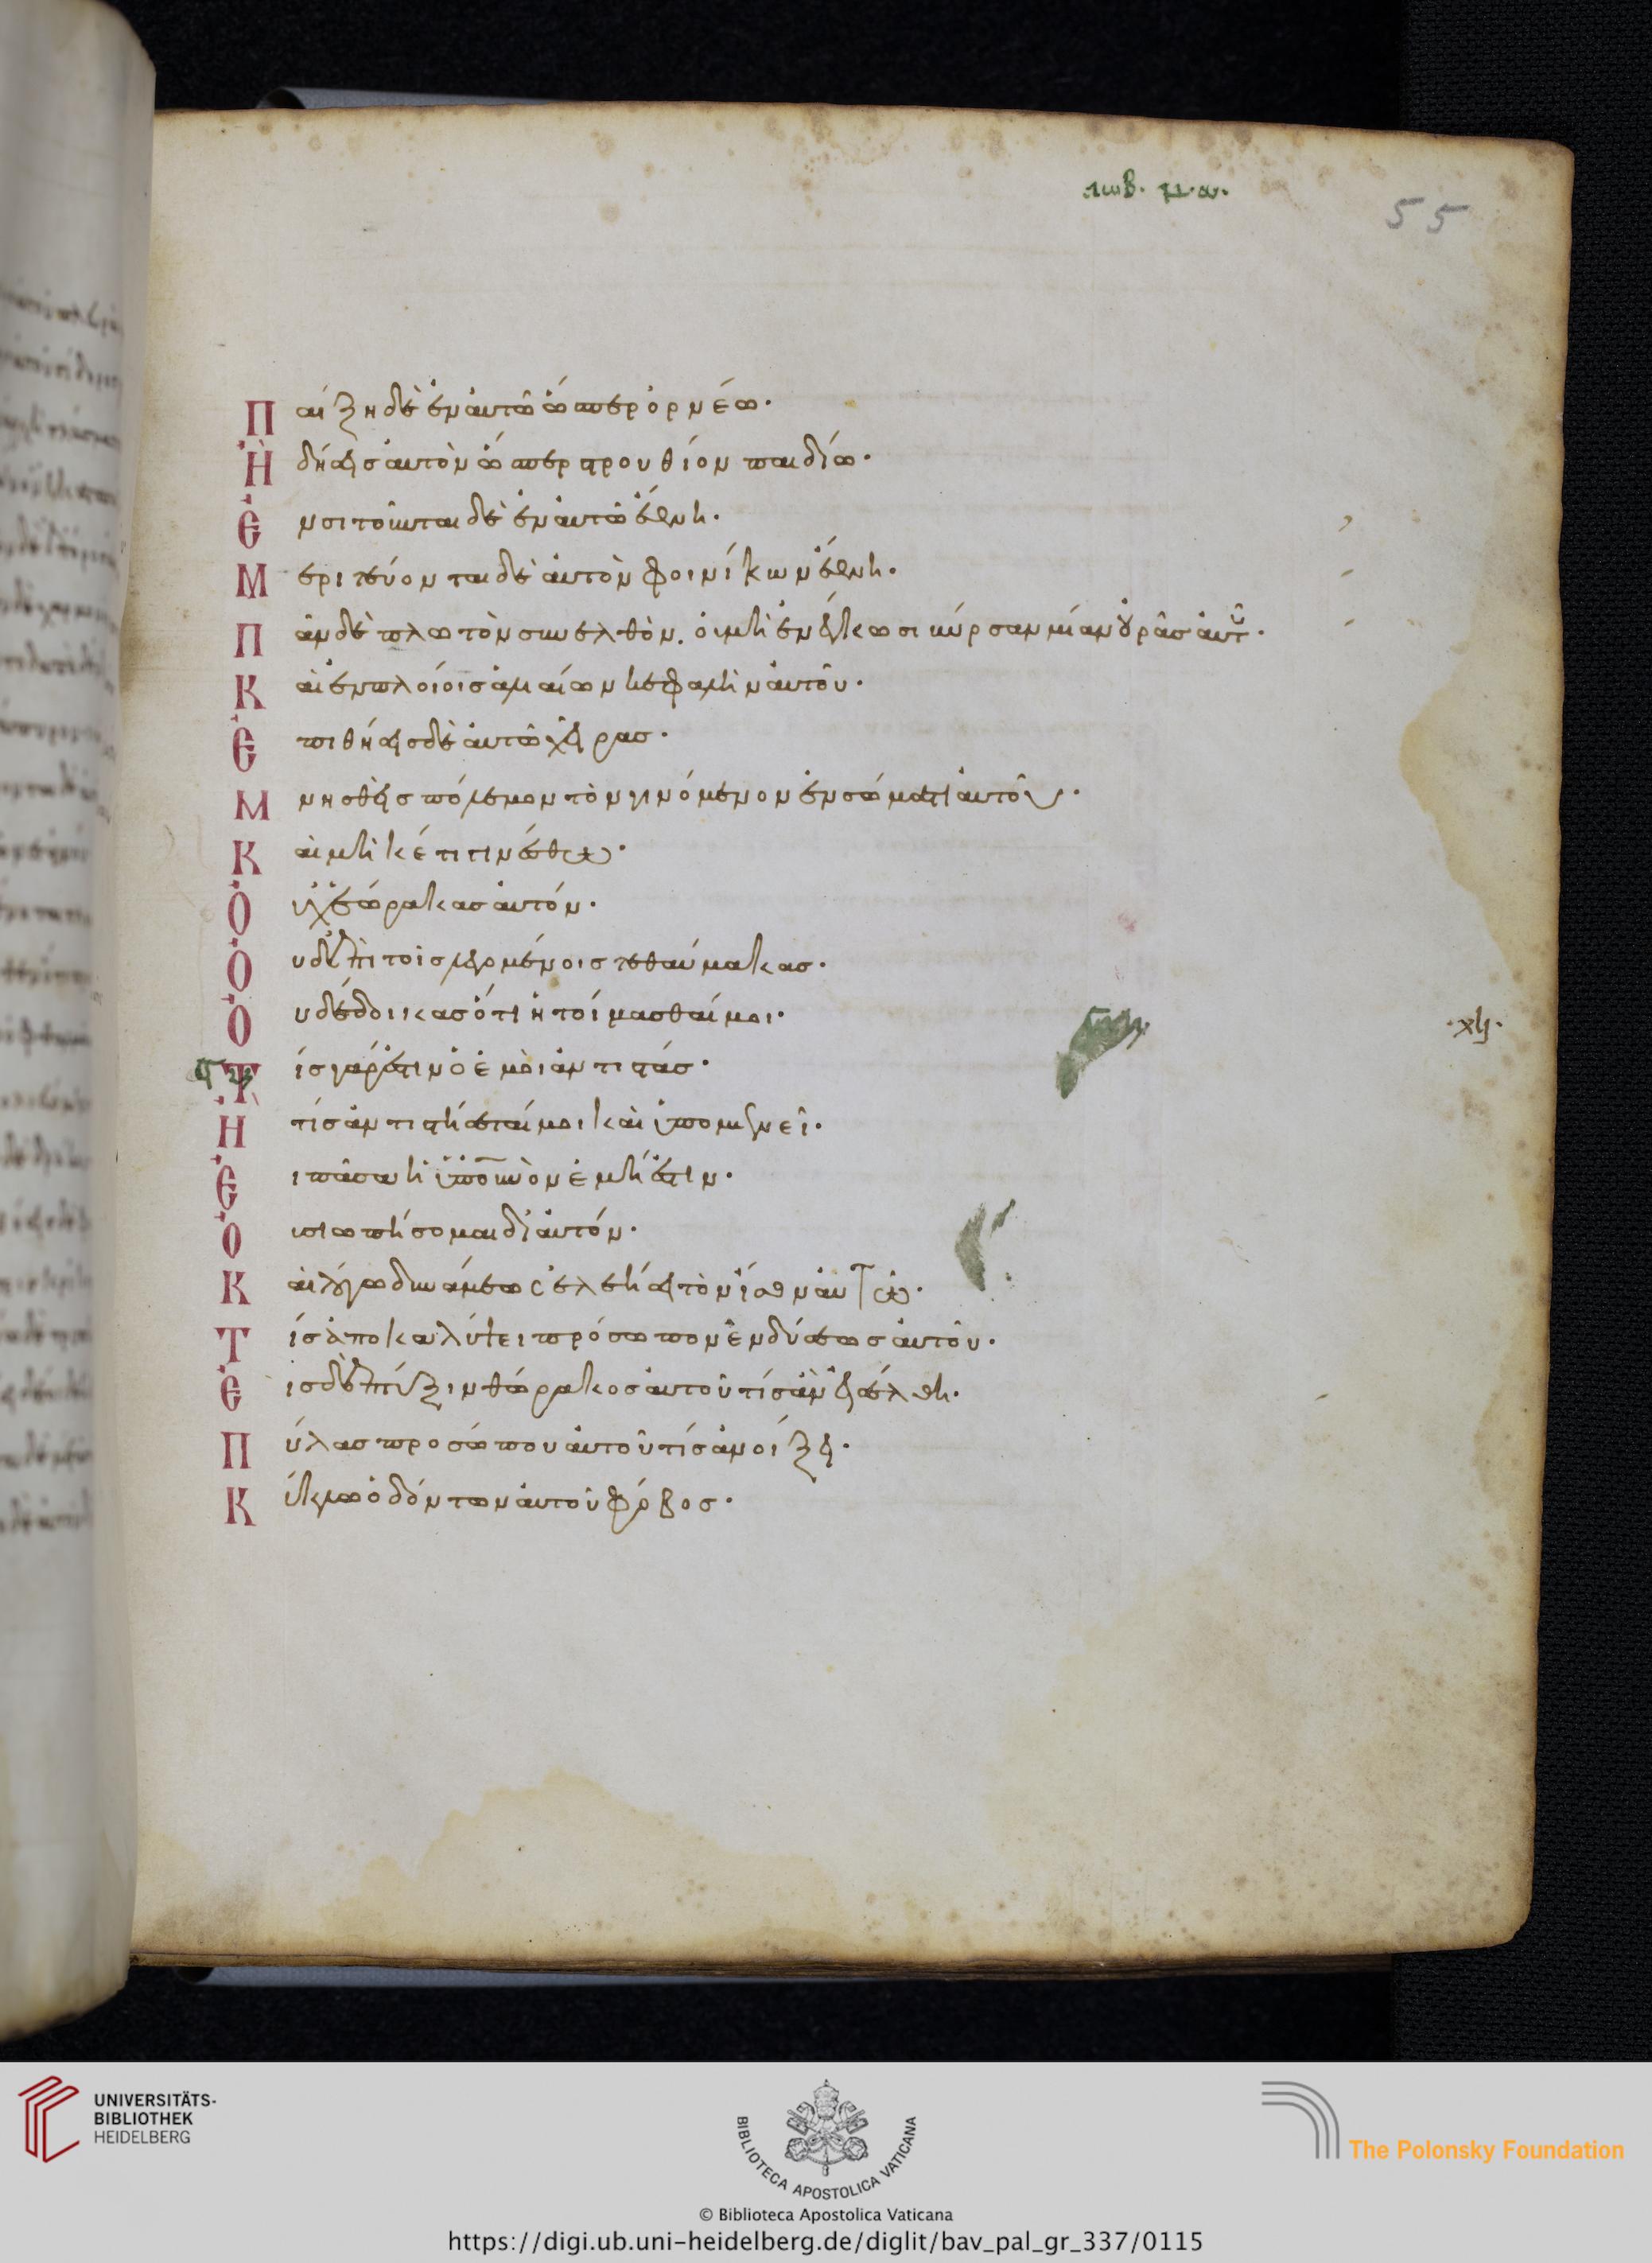 ιωβ. μ.α.
55
Παίξη δὲ ἐν αὐτῶ ὥσπερ ὀρνέω·
Ἢ δήσεις αὐτὸν ὥσπερ στρουθίον παιδίω·
Ἐνσιτοῦνται δὲ ἐν αὐτῶ ἔθνη·
Μεριτεύονται δὲ αὐτὸν φοινίκων ἔθνη·
Πᾶν δὲ πλωτὸν συνελθὸν. οὐ μὴ ἐνέγκωσι βύρσαν μίαν οὐρᾶς αὐτοῦ·
Καὶ ἐν πλοίοις ἁλιαίων κεφαλὴν αὐτοῦ·
Ἐπιθήσεις δὲ αὐτῶ χεῖρας·
Μνησθεὶς πόλεμον τὸν γινόμενον ἐν σώματι αὐτοῦ·
Καὶ μὴκέτι γινέσθω·
Οὐχ ἑώρακας αὐτόν·
Οὐδὲ ἐπὶ τοῖς λεγομένοις τεθαύμακας·
Οὐ δέδοικας ὅτι ἡτοίμασθαί μοι·
·xlj·
Τίς γάρ ἐστιν ὁ ἐμοὶ ἀντιστάς·
Ἢ τίς ἀντιστήσεταί μοι καὶ ὑπομενεῖ·
Εἰ πᾶσα ἡ ὑπ οὐρανὸν ἐμή ἐστιν·
Οὐ σιωπήσομαι δι αὐτόν·
Καὶ λόγω δυνάμεως ἐλεήσει τὸν ἴσον αὐτῶ·
Τίς ἀποκαλύψει πρόσωπον ἐνδύσεως αὐτοῦ·
Εἰς δὲ πτύξιν θώρακος αὐτοῦ τίς ἂν εἰσέλθη·
Πύλας προσώπου αὐτοῦ τίς ἀνοίξει·
Κύκλω ὀδόντων αὐτοῦ φόβος·
UNIVERSITÄTS-
BIBLIOTHEK
HEIDELBERG
BIBLIOTECA APOSTOLICA VATICANA
The Polonsky Foundation
© Biblioteca Apostolica Vaticana
https://digi.ub.uni-heidelberg.de/diglit/bav_pal_gr_337/0115